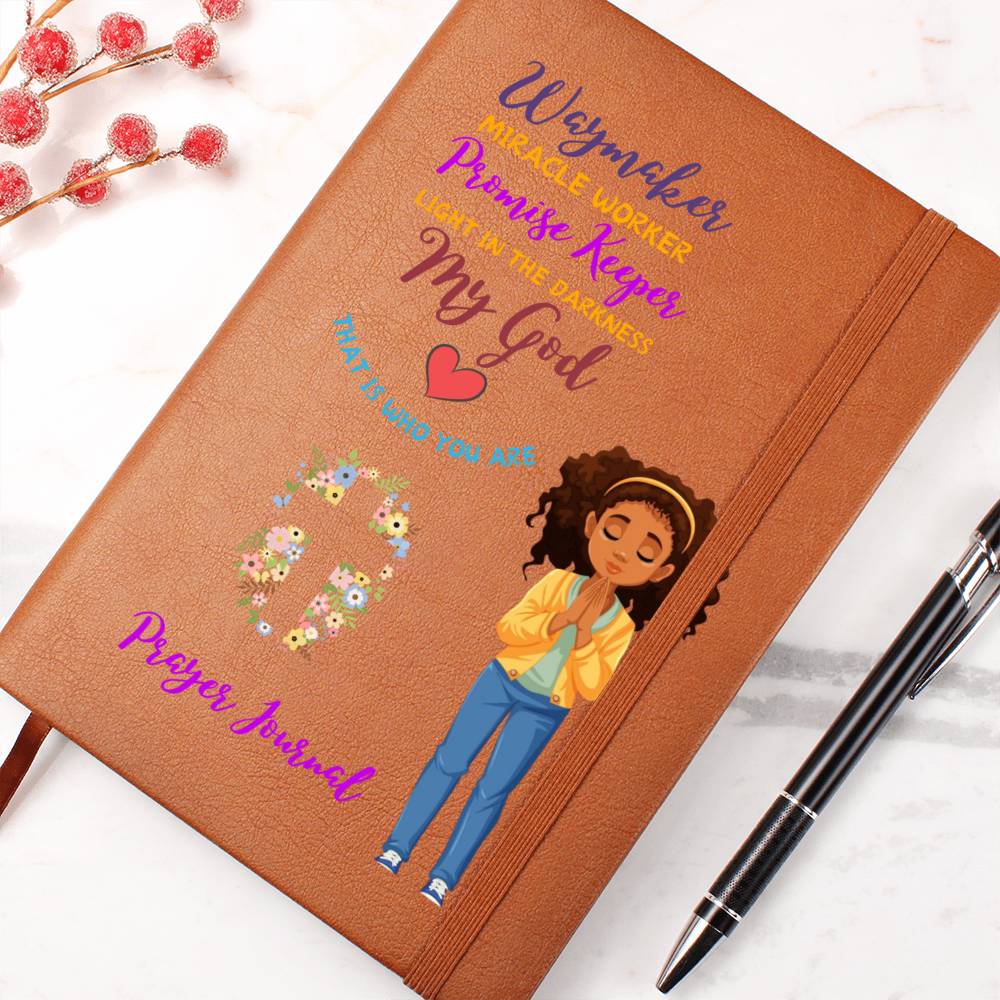 Waymaker
MIRACLE WORKER
Promise Keeper
LIGHT IN THE DARKNESS
My God
THAT IS WHO YOU ARE
Prayer Journal